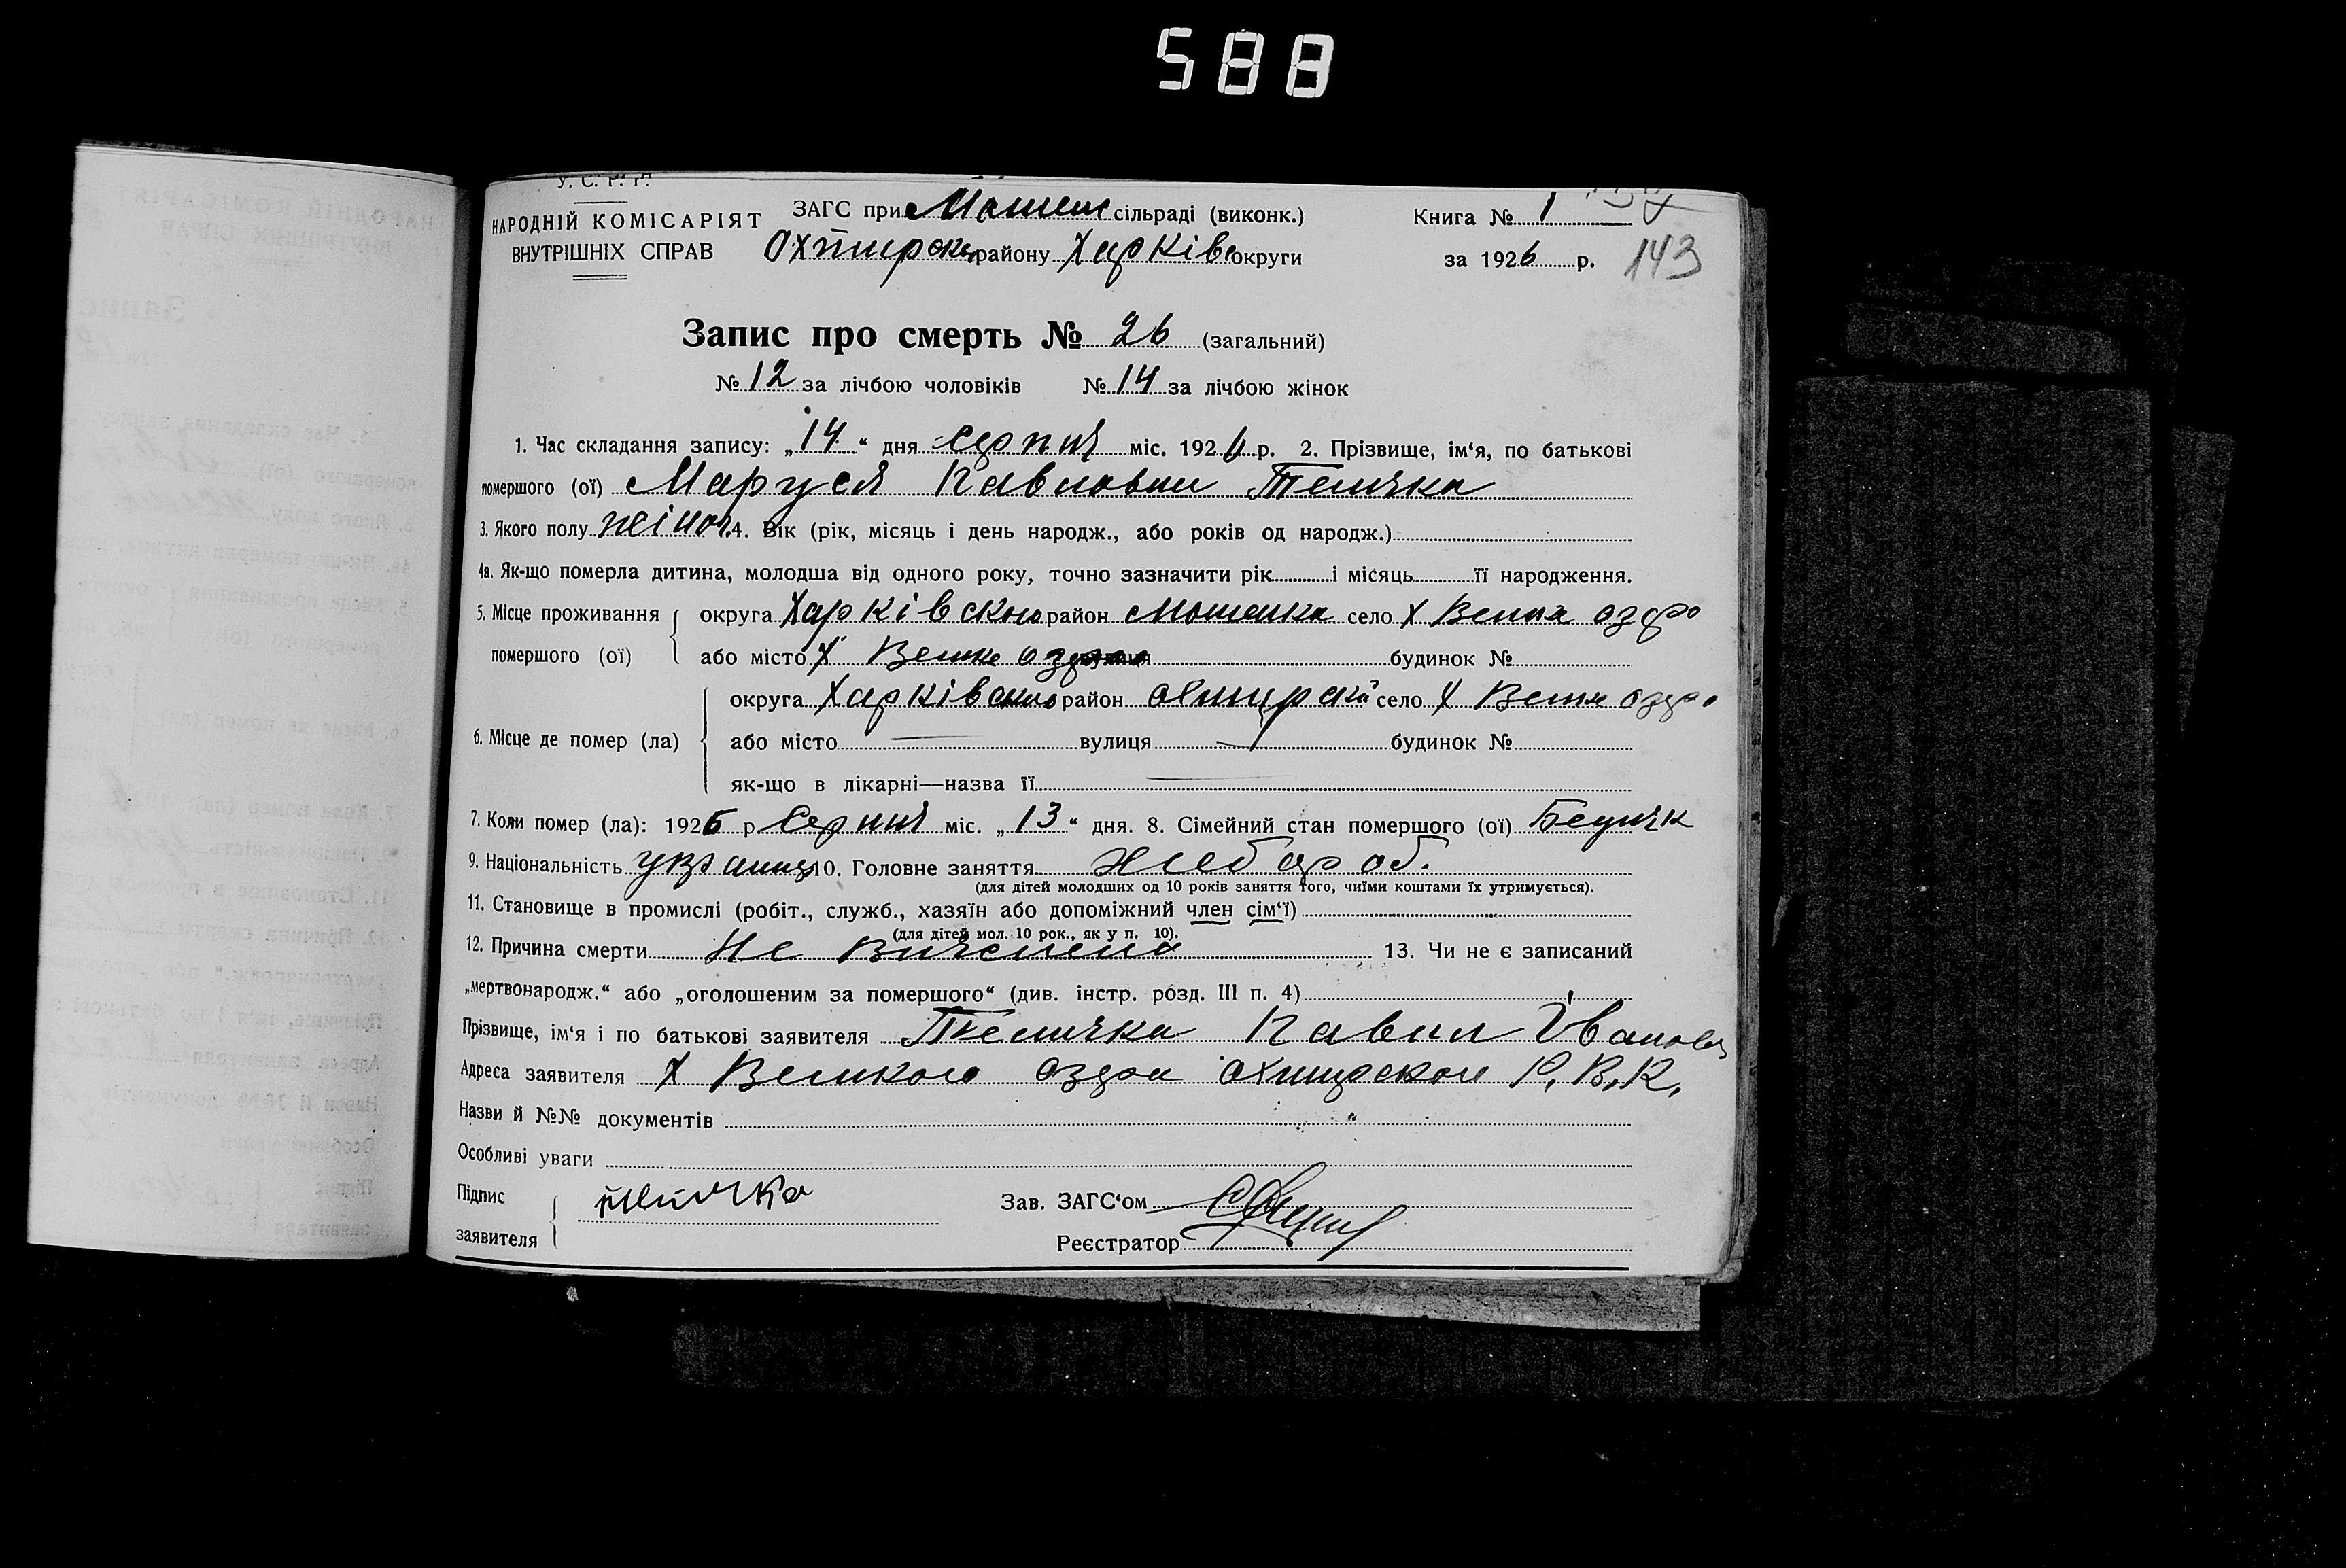 588
У. С. Р. Р.
НАРОДНІЙ КОМІСАРІЯТ
ВНУТРІШНІХ СПРАВ
ЗАГС при Мошенс сільраді (виконк.)
Охтирськ району Харківс округи
Книга № 1
за 1926 р. 143
Запис про смерть № 26 (загальний)
№ 12 за лічбою чоловіків № 14 за лічбою жінок
1. Час складання запису: „14“ дня серпня міс. 1926 р. 2. Прізвище, ім‘я, по батькові
помершого (ої) Маруся Павловна Теличка
3. Якого полу жіноч. 4. Вік (рік, місяць і день народж., або років од народж.)
4а. Як-що померла дитина, молодша від одного року, точно зазначити рік і місяць її народження.
5. Місце проживання помершого (ої)
округа Харківська район село Х озро
або місто Х будинок №
6. Місце де помер (ла)
округа Харківська район село Х озро
або місто — вулиця — будинок №
як-що в лікарні—назва її —
7. Коли помер (ла): 1926 р серпня міс. „13“ дня. 8. Сімейний стан помершого (ої)
9. Національність 10. Головне заняття хлебороб.
(для дітей молодших од 10 років заняття того, чиїми коштами їх утримується).
11. Становище в промислі (робіт., служб., хазяїн або допоміжний член сім‘ї)
(для дітей мол. 10 рок., як у п. 10).
12. Причина смерти Не 13. Чи не є записаний
„мертвонародж.“ або „оголошеним за помершого“ (див. інстр. розд. III п. 4)
Прізвище, ім‘я і по батькові заявителя Теличка Павил
Адреса заявителя Х Великого озра Р. В. К.
Назви й №№ документів
Особливі уваги
Підпис заявителя теличка
Зав. ЗАГС‘ом
Реєстратор